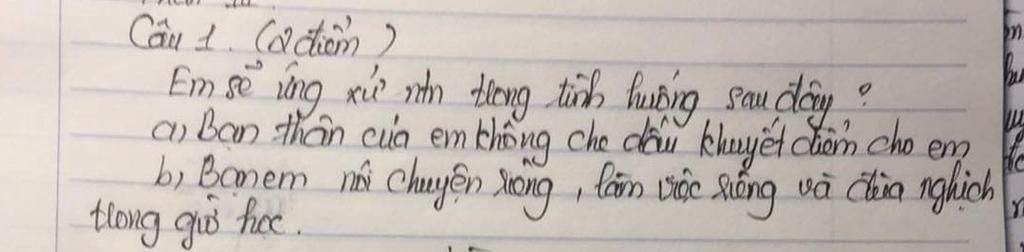 Câu 1. (2 điểm)
Em sẽ ứng xử ntn trong tình huống sau đây?
a) Bạn thân của em không che dấu khuyết điểm cho em
b, Bạn em nói chuyện riêng, làm việc riêng và đùa nghịch
trong giờ học.